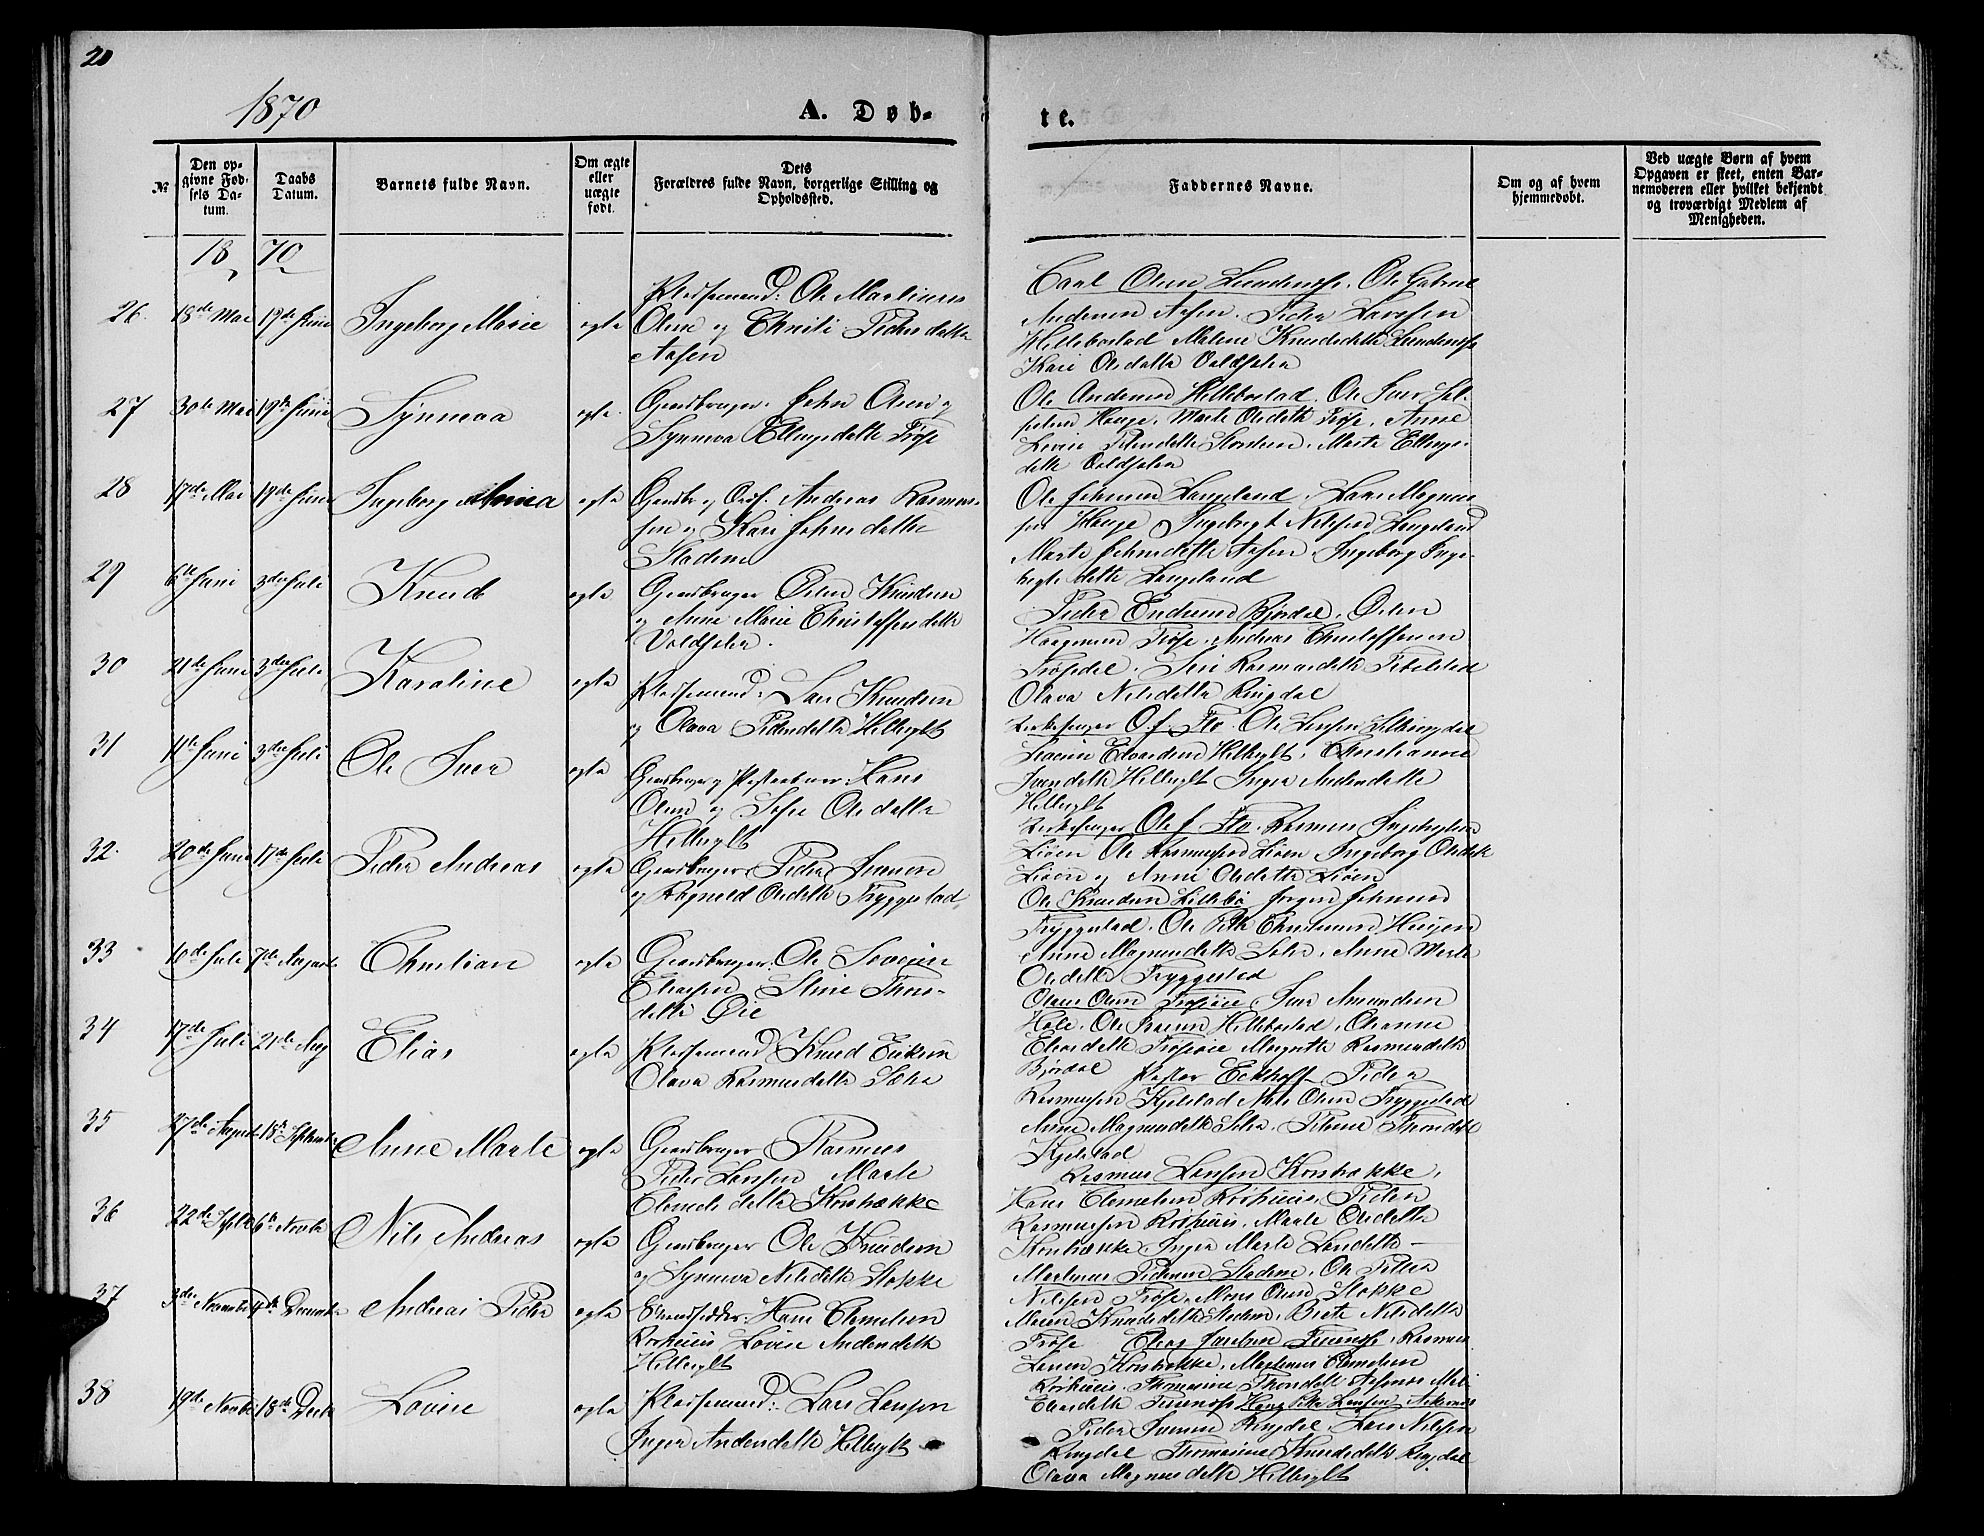 20
1870
A. Døb-
te.
№
Den op-
givne Fød-
sels Da-
tum.
Daabs
Datum.
Barnets fulde Navn.
Om ægte
eller
uægte
født.
Dets
Forældres fulde Navn, borgerlige Stilling og
Opholdssted.
Faddernes Navne.
Om og af hvem
hjemmedøbt.
Ved uægte Børn af hvem
Opgaven er skeet, enten Bar-
nemoderen eller hvilket bekjendt
og troværdigt Medlem af
Menigheden.
18 70
26. 18de Mai 19de Juni Ingeborg Marie ægte
Pladsemand: Ole Martinus
Olsen og Christi Pedersdatter
Aasen
Carl Olsen Ole Gabriel
Andersen Aasen. Peder Larssen
Hillebostad Malene Knudsdatter
Kari Olsdatter Voldsæter
27 30te Mai 19de Juni Synneva ægte
Gaardbruger. John Olsen og
Synneva Ellingsdatter Frøse
Ole Andersen Hillebostad. Ole
Hauge. Marte Olsdatter Frøse. Anne
Lovise Petersdatter Marte Ellings-
datter Voldsæter
28 17de Mai 19de Juni Ingeborg Anna ægte
Gaardbr. og Andreas Rasmus-
sen og Kari Johnsdatter
Stadem
Ole Johnsen Langeland, Lars Magnus-
sen Hauge Ingebrigt Nilssen Langeland
Marte Johnsdatter Aasen. Ingeborg Inge-
brigtsdatter Langeland
29 6te Juni 3die Juli Knud ægte
Gaardbruger Østen Knudsen
og Anne Marie Christoffersdatter
Voldsæter.
Peder Endresen Bjørdal. Østen
Haagensen Frøse. Andreas Christoffersen
Frøsedal. Siri Rasmusdatter
Olava Nilsdatter Ringdal
30 21de Juni 3die Juli Karoline ægte
Pladsemand: Lars Knudsen
og Olava Pedersdatter Hellesylt
Kirkesanger O. J. Flo. Ole
Edvardsen Hellesylt. Christianne
Iversdatter Hellesylt Inger Andersdatter
Hellesylt
31 11te Juni 3die Juli Ole Iver ægte
Gaardbruger og Hans
Olsen og Olsdatter
Hellesylt
Kirkesanger Ole J. Flo. Rasmus Ingebrigtsen
Liøen Ole Rasmussen Liøen Ingeborg Olsdatter
Liøen og Anne Olsdatter Liøen
32. 20de Juni 17de Juli Peder Andreas ægte
Gaardbruger Peder Iversen
og Ragnild Olsdatter Tryggestad
Ole Knudsen Lillebø Jørgen Johnsen
Tryggestad. Ole Peter Christensen
Anne Magnusdatter. Anne Marte
Olsdatter Tryggestad
33 10de Juli 7de August Christian ægte
Gaardbruger: Ole
Eliassen, Stine Thors-
datter Øie
Olaus Olsen Iver Amundsen
Hole. Ole Hillebostad. Olianne
Eliasdatter Margrethe Rasmusdatter
Bjørdal
34 17de Juli 21de Aug Elias ægte
Pladsemand Knud Eriksen
Olava Rasmusdatter
Pastor Eckhoff Peder
Rasmussen Kjelstad Nils Olsen Tryggestad
Anne Magnusdatter. Petrine Thorsdatter
Kjelstad
35 27de August 18de September Anne Marte ægte
Gaardbruger Rasmus
Peder Larssen Marte
Clemetsdatter Korsbrække
Rasmus Larssen Korsbrække.
Hans Clemetsen Røshuus. Peder
Rasmussen Røshuus. Marte Olsdatter
Korsbrække. Inger Marte Larsdatter —
36 22de Septbr 6te Novbr Nils Andreas ægte
Gaardbruger Ole Knudsen
og Synneva Nilsdatter Stokke
Martinus Pedersen Stadem. Ole Peter
Nilssen Frøse. Mons Olsen Stokke
Knudsdatter Berte Nilsdatter
Frøse
37 3die November 4de December Andreas Peder ægte
Strandsidder: Hans Clemetsen
Røshuus Lovise Andersdatter
Hellesylt
Elias Jacobsen Rasmus
Larsen Korsbrække. Martinus Clemetsen
Røshuus. Thomasine Thorsdatter
Eliasdatter
38 19de Novbr 18de Decbr Lovise ægte
Pladsemand: Lars Larssen
Inger Andersdatter Hellesylt
Hans Peter Larssen
Peder Iversen Ringdal. Lars Nilssen
Ringdal Thomasine Knudsdatter Ringdal
Olava Magnusdatter Hellesylt